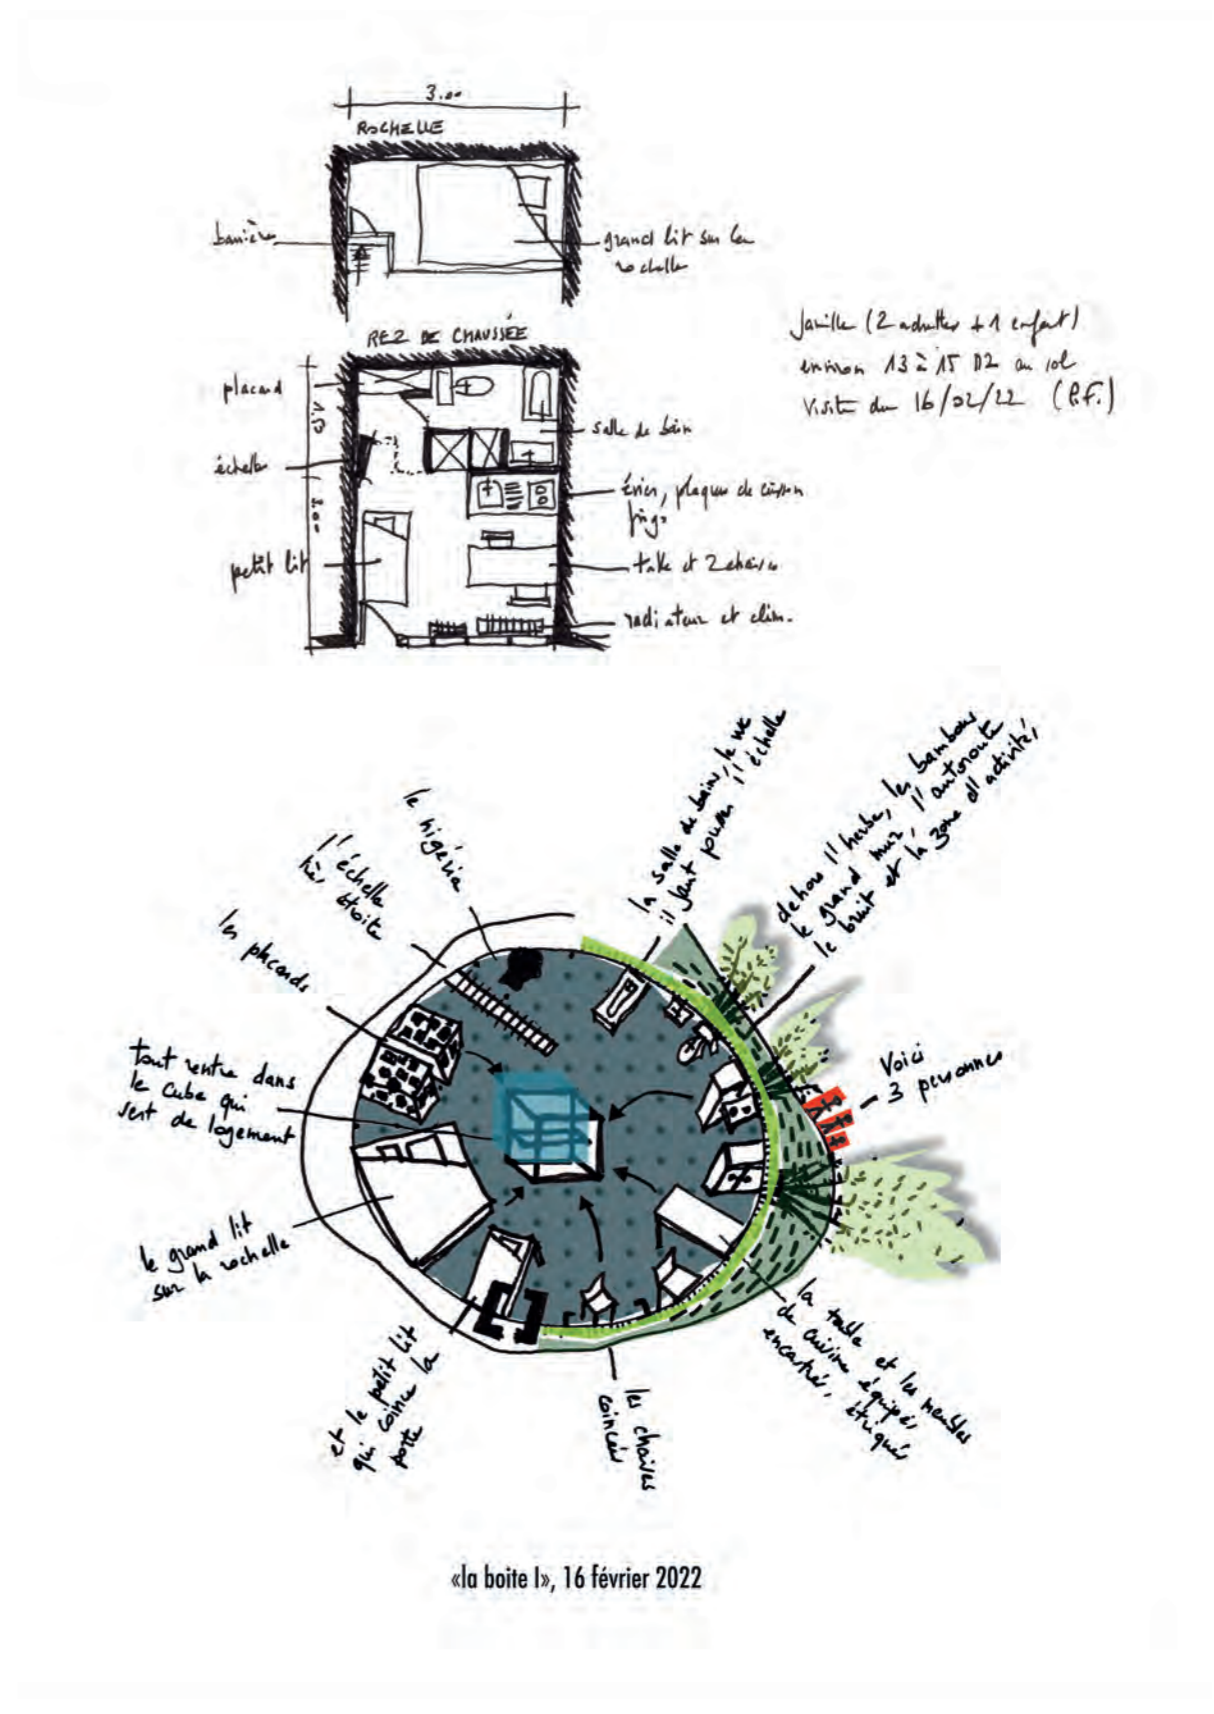 3.00
ROCHELLE
barrière
grand lit sur la
rochelle
REZ DE CHAUSSÉE
placard
1.50
échelle
3.00
petit lit
salle de bain
évier, plaques de cuisson
frigo
table et 2 chaises
radiateur et clim.
famille (2 adultes + 1 enfant)
environ 13 à 15 m2 au sol
Visite du 16/02/22 (P.F.)
le nigéria
l'échelle
très étroite
les placards
tout rentre dans
le cube qui
sert de logement
le grand lit
sur la rochelle
et le petit lit
qui coince la
porte
les chaises
coincées
la table et les meubles
de cuisine équipée,
encastrés, étriqués
Voici
3 personnes
dehors l'herbe, les bambous
le grand mur, l'autoroute
le bruit et la zone d'activité,
la salle de bains, le wc
il faut pousser l'échelle
«la boite I», 16 février 2022